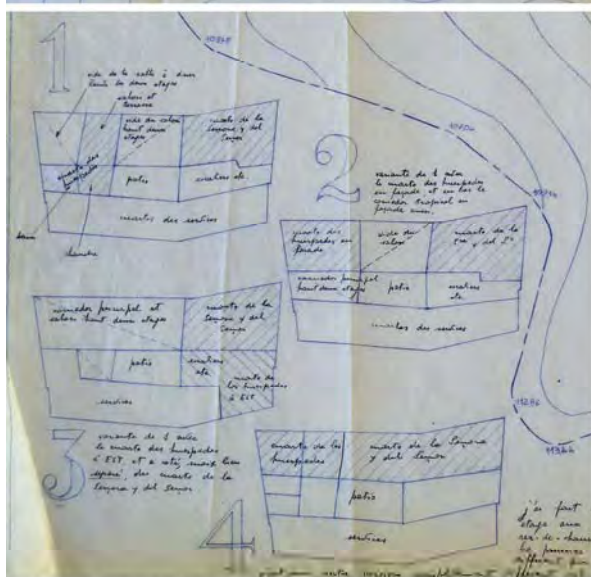 1
vide de la salle à
haute de deux etages
salon et
terrasse
vide du salon
haut deux
etages
cuarto de la
Senora y del
Senor
cuarto des
huespedes
patio
escaliers etc.
cuartos des services
chambre
10868
2
variante de 1
le cuarto des huespedes
en façade et en bas le
comedor tropical en
façade
cuarto des
huespedes en
facade
vide du
salon
cuarto de la
Sra y del Sr
comedor principal
haut deux etages
patio
escaliers
etc
cuartos des services
comedor principal et
salon haut deux etages
cuarto de la
Senora y del
Senor
patio
escaliers
etc
cuarto de
los huespedes
à EST
services
11286
11366
3
variante de 1
le cuarto des huespedes
à EST et a coté, mais bien
separé, des cuarto de la
Senora y del Senor
4
cuarto de los
huespedes
cuarto de la Senora
y del Senor
patio
services
j'ai fait
etage
rez-de-